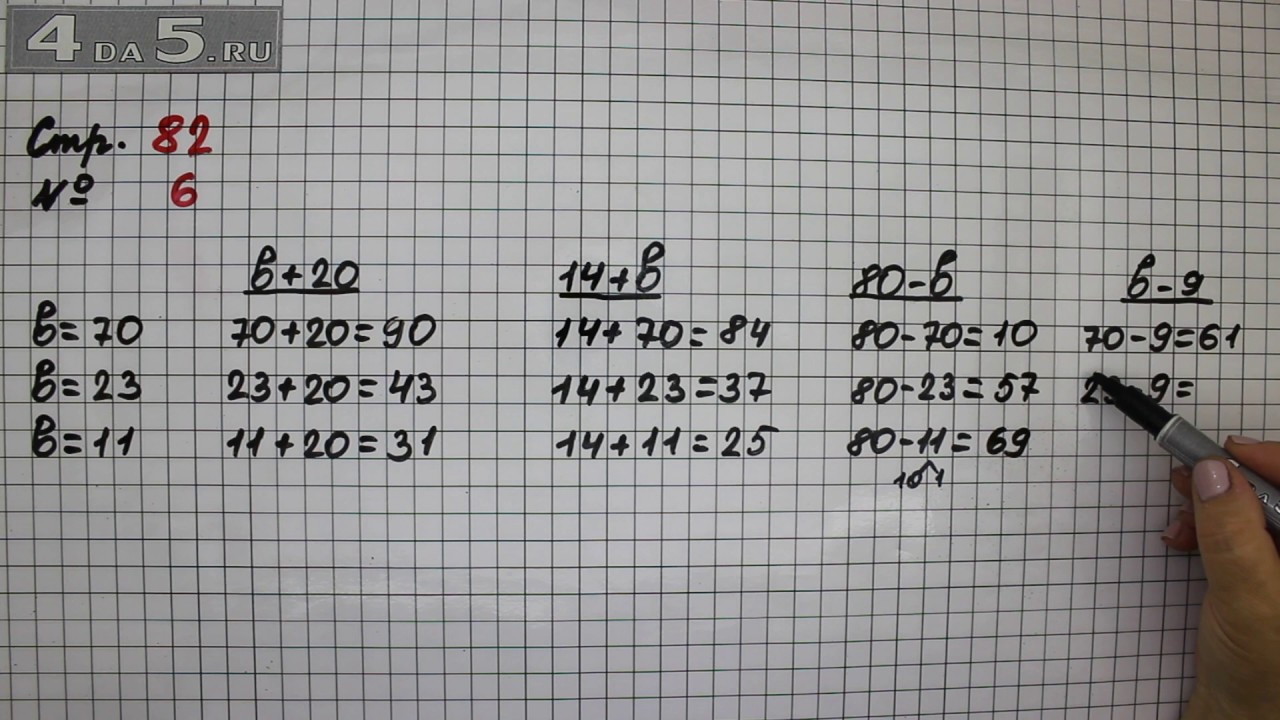 4 DA 5.RU
Стр. 82
№ 6
в+20 14+в 80-в в-9
в=70 70+20=90 14+70=84 80-70=10 70-9=61
в=23 23+20=43 14+23=37 80-23=57 23-9=
в=11 11+20=31 14+11=25 80-11=69
10 1